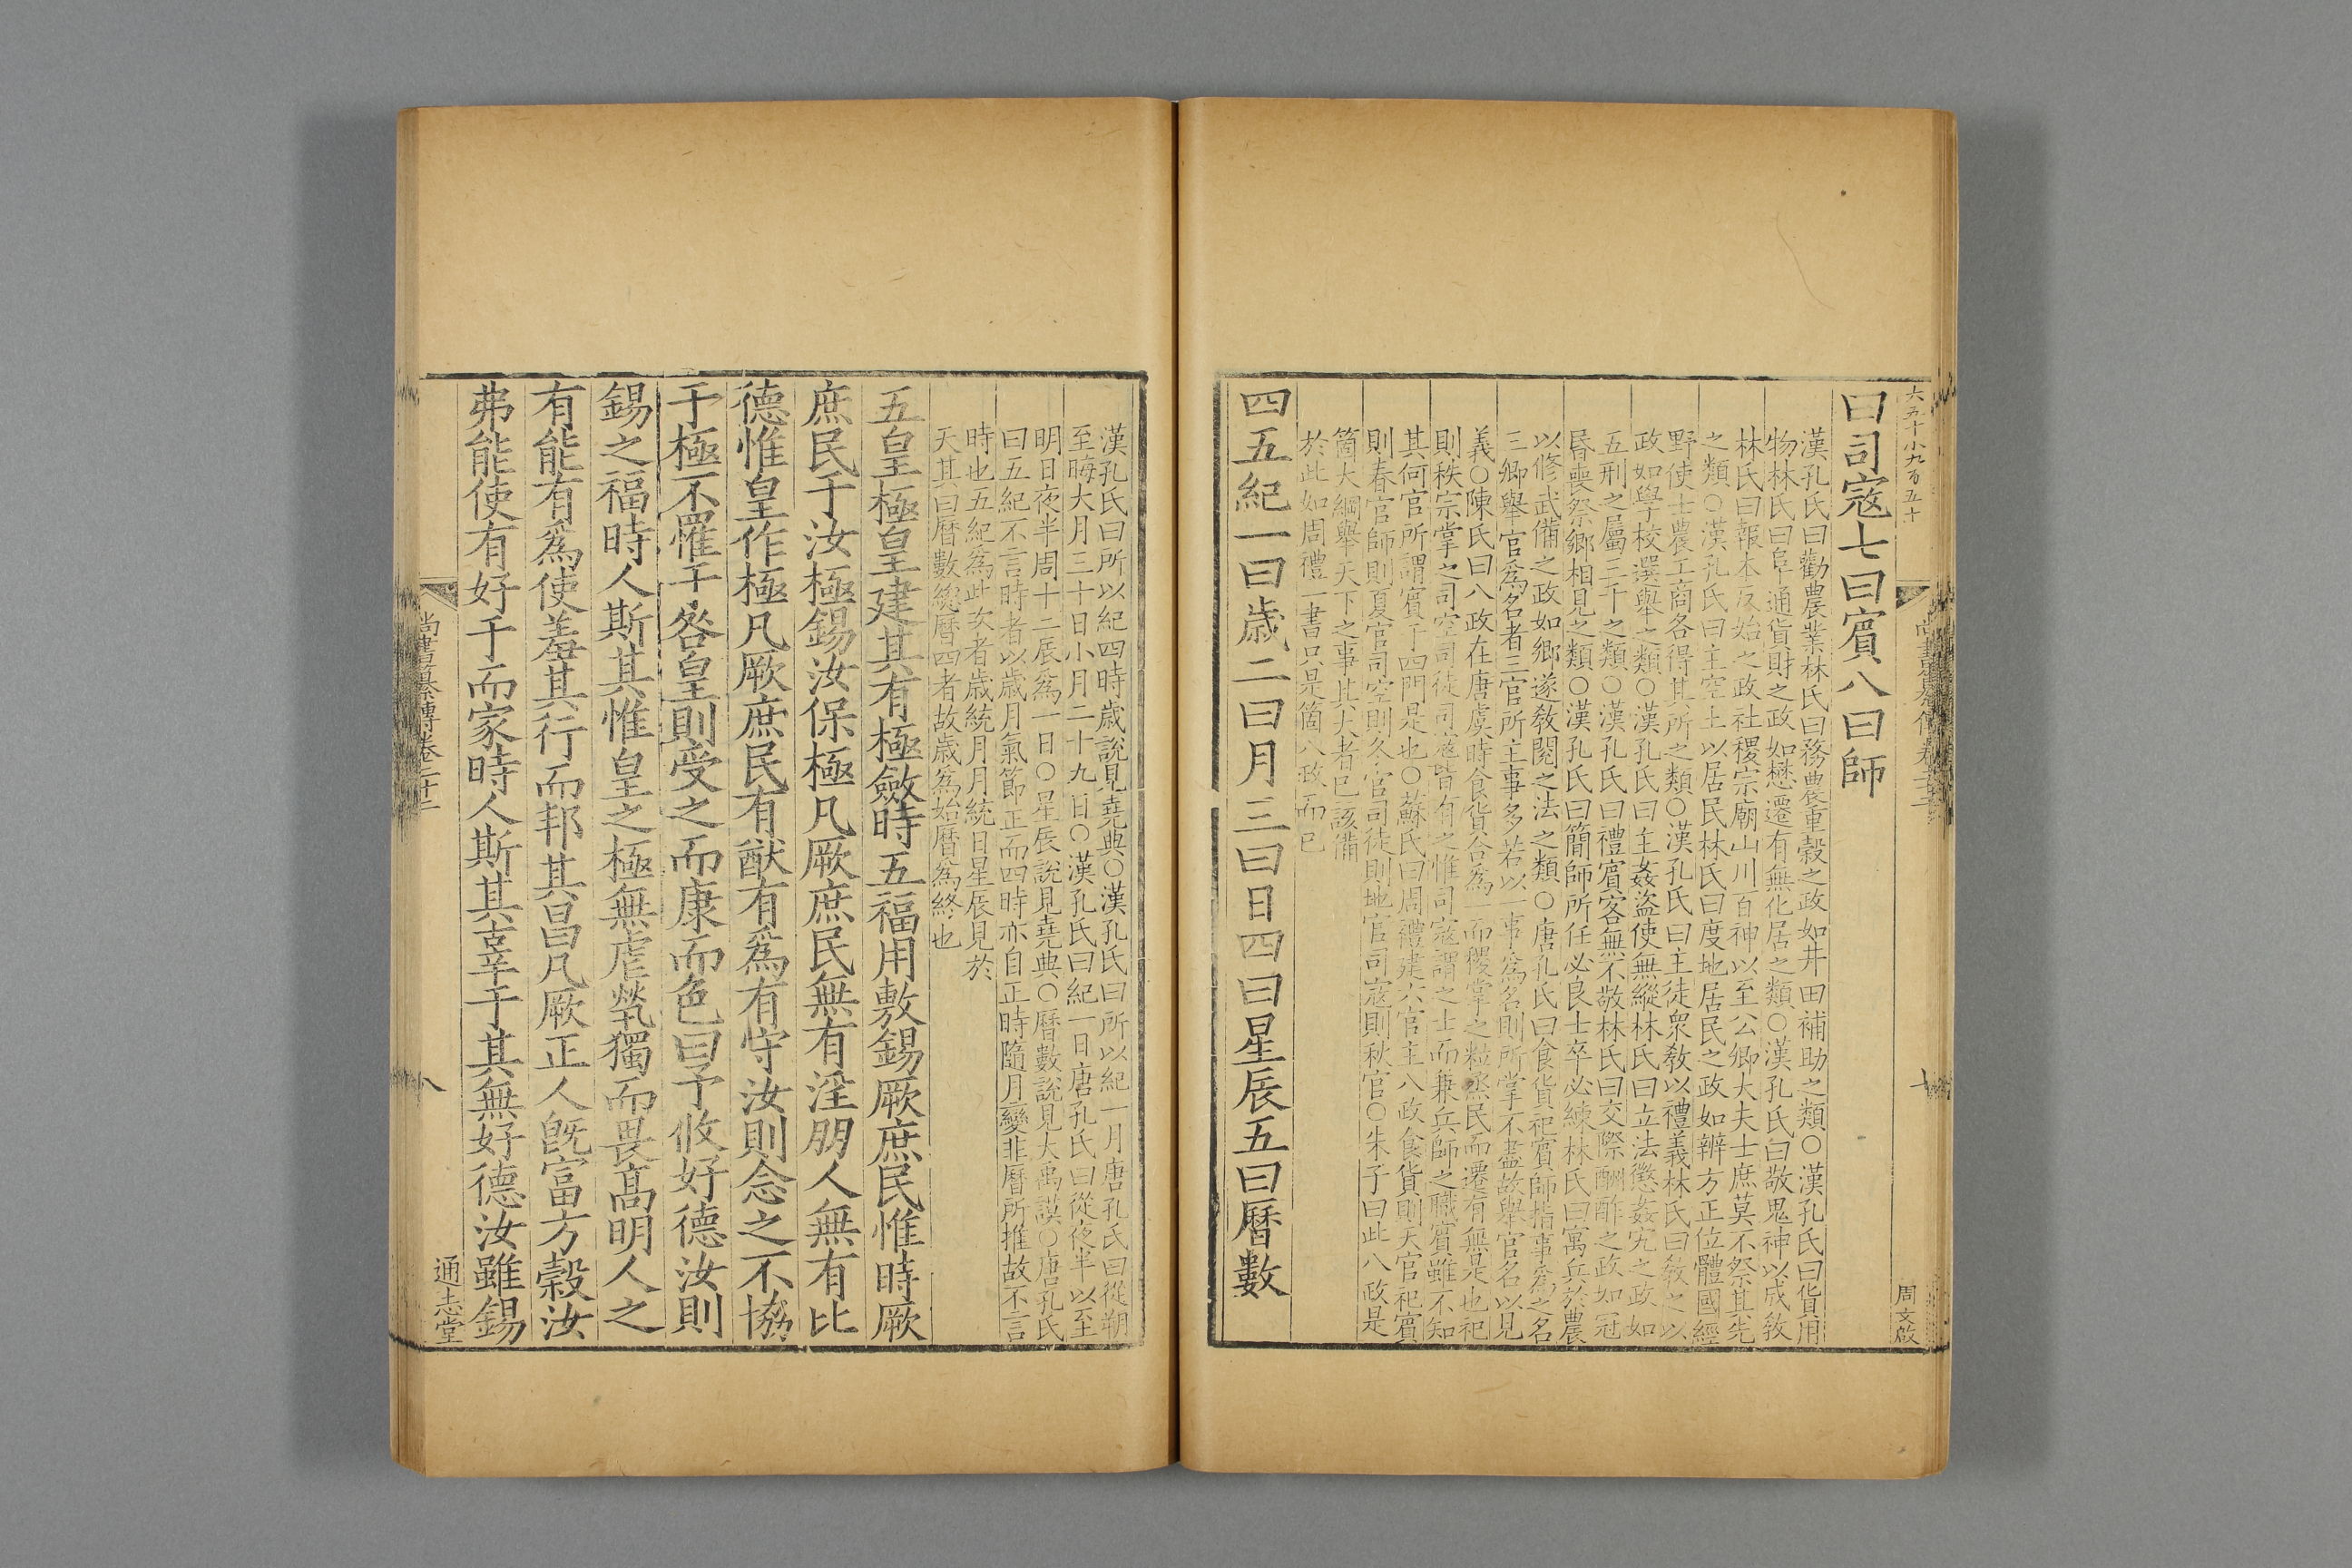 六五十小九百五十
尚書纂傳卷二十二
七
周文啟
曰司寇七曰賓八曰師
漢孔氏曰勸農業林氏曰務農重穀之政如井田補助之類○漢孔氏曰貨用
物林氏曰阜通貨財之政如懋遷有無化居之類○漢孔氏曰敬鬼神以成敎
林氏曰報本反始之政社稷宗廟山川百神以至公卿大夫士庶莫不祭其先
之類○漢孔氏曰主空土以居民林氏曰度地居民之政如辨方正位體國經
野使士農工商各得其所之類○漢孔氏曰主徒衆敎以禮義林氏曰敎之以
政如學校選舉之類○漢孔氏曰主姦盜使無縱林氏曰立法懲姦宄之政如
五刑之屬三千之類○漢孔氏曰禮賓客無不敬林氏曰交際酬酢之政如冠
昏喪祭鄉相見之類○漢孔氏曰簡師所任必良士卒必練林氏曰寓兵於農
以修武備之政如鄉遂敎閱之法之類○唐孔氏曰食貨祀賓師指事爲之名
三卿舉官爲名者三官所主事多若以一事爲名則所掌不盡故舉官名以見
義○陳氏曰八政在唐虞時食貨合爲一而稷掌之粒烝民而遷有無是也祀
則秩宗掌之司空司徒司寇皆有之惟司寇謂之士而兼兵師之職賓雖不知
其何官所謂賓于四門是也○蘇氏曰周禮建六官主八政食貨則天官祀賓
則春官師則夏官司空則冬官司徒則地官司寇則秋官○朱子曰此八政是
箇大綱舉天下之事其大者已該備
於此如周禮一書只是箇八政而已
四五紀一曰歲二曰月三曰日四曰星辰五曰曆數
漢孔氏曰所以紀四時歲說見堯典○漢孔氏曰所以紀一月唐孔氏曰從朔
至晦大月三十日小月二十九日○漢孔氏曰紀一日唐孔氏曰從夜半以至
明日夜半周十二辰爲一日○星辰說見堯典○曆數說見大禹謨○唐孔氏
曰五紀不言時者以歲月氣節正而四時亦自正時隨月變非曆所推故不言
時也五紀爲此次者歲統月月統日星辰見於
天其曰曆數總曆四者故歲爲始曆爲終也
五皇極皇建其有極斂時五福用敷錫厥庶民惟時厥
庶民于汝極錫汝保極凡厥庶民無有淫朋人無有比
德惟皇作極凡厥庶民有猷有爲有守汝則念之不協
于極不罹于咎皇則受之而康而色曰予攸好德汝則
錫之福時人斯其惟皇之極無虐煢獨而畏高明人之
有能有爲使羞其行而邦其昌凡厥正人旣富方穀汝
弗能使有好于而家時人斯其辜于其無好德汝雖錫
尚書纂傳卷二十二
八
通志堂